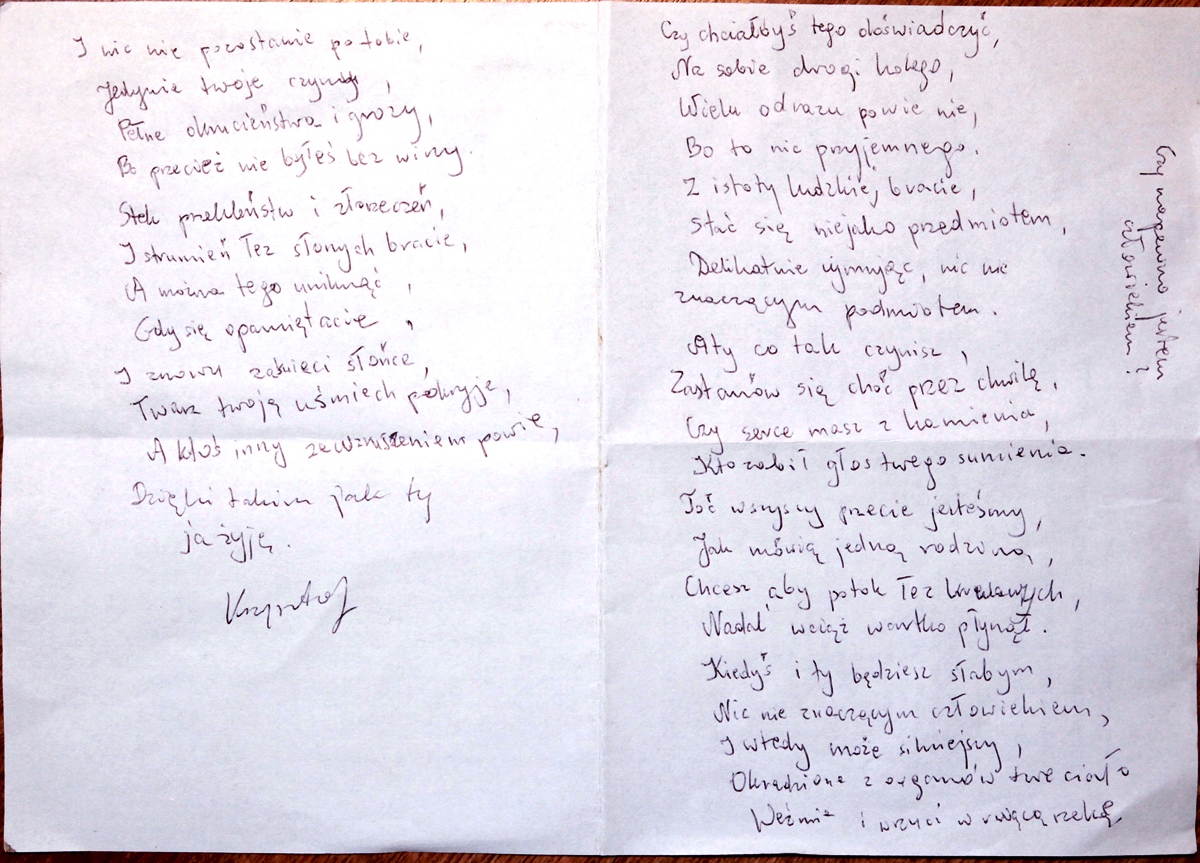 Czy napewno jestem
człowiekiem?
Czy chciałbyś tego doświadczyć,
Na sobie drogi kolego,
Wielu odrazu powie nie,
Bo to nic przyjemnego.
Z istoty ludzkiej, bracie,
Stać się niejako przedmiotem,
Delikatnie ujmując, nic nie
znaczącym podmiotem.
A ty co tak czynisz,
Zastanów się choć przez chwilę,
Czy serce masz z kamienia,
Kto zabił głos twego sumienia.
Toć wszyscy przecie jesteśmy,
Jak mówią jedną rodziną,
Chcesz aby potok łez krwawych,
Nadal wciąż wartko płynął.
Kiedyś i ty będziesz słabym,
Nic nie znaczącym człowiekiem,
I wtedy może silniejszy,
Okradzione z organów twe ciało
Weźmie i wrzuci w rwącą rzekę
I nic nie pozostanie po tobie,
Jedynie twoje czyny,
Pełne okrucieństwa i grozy,
Bo przecież nie byłeś bez winy.
Stek przekleństw i złorzeczeń,
I strumień łez słonych bracie,
A można tego uniknąć,
Gdy się opamiętacie,
I znowu zaświeci słońce,
Twarz twoją uśmiech pokryje,
A ktoś inny ze wzruszeniem powie,
Dzięki takim jak ty
ja żyję.
Krzysztof